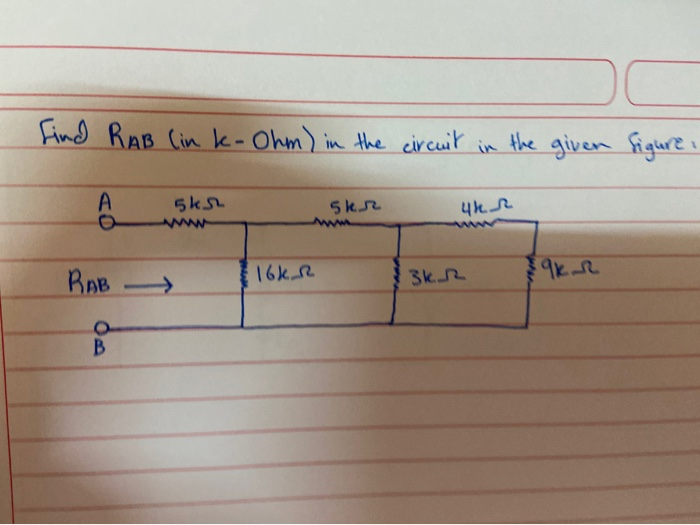 Find RAB (in k-Ohm) in the circuit in the given figure:
A 5kΩ 5kΩ 4kΩ
RAB → 16kΩ 3kΩ 9kΩ
B